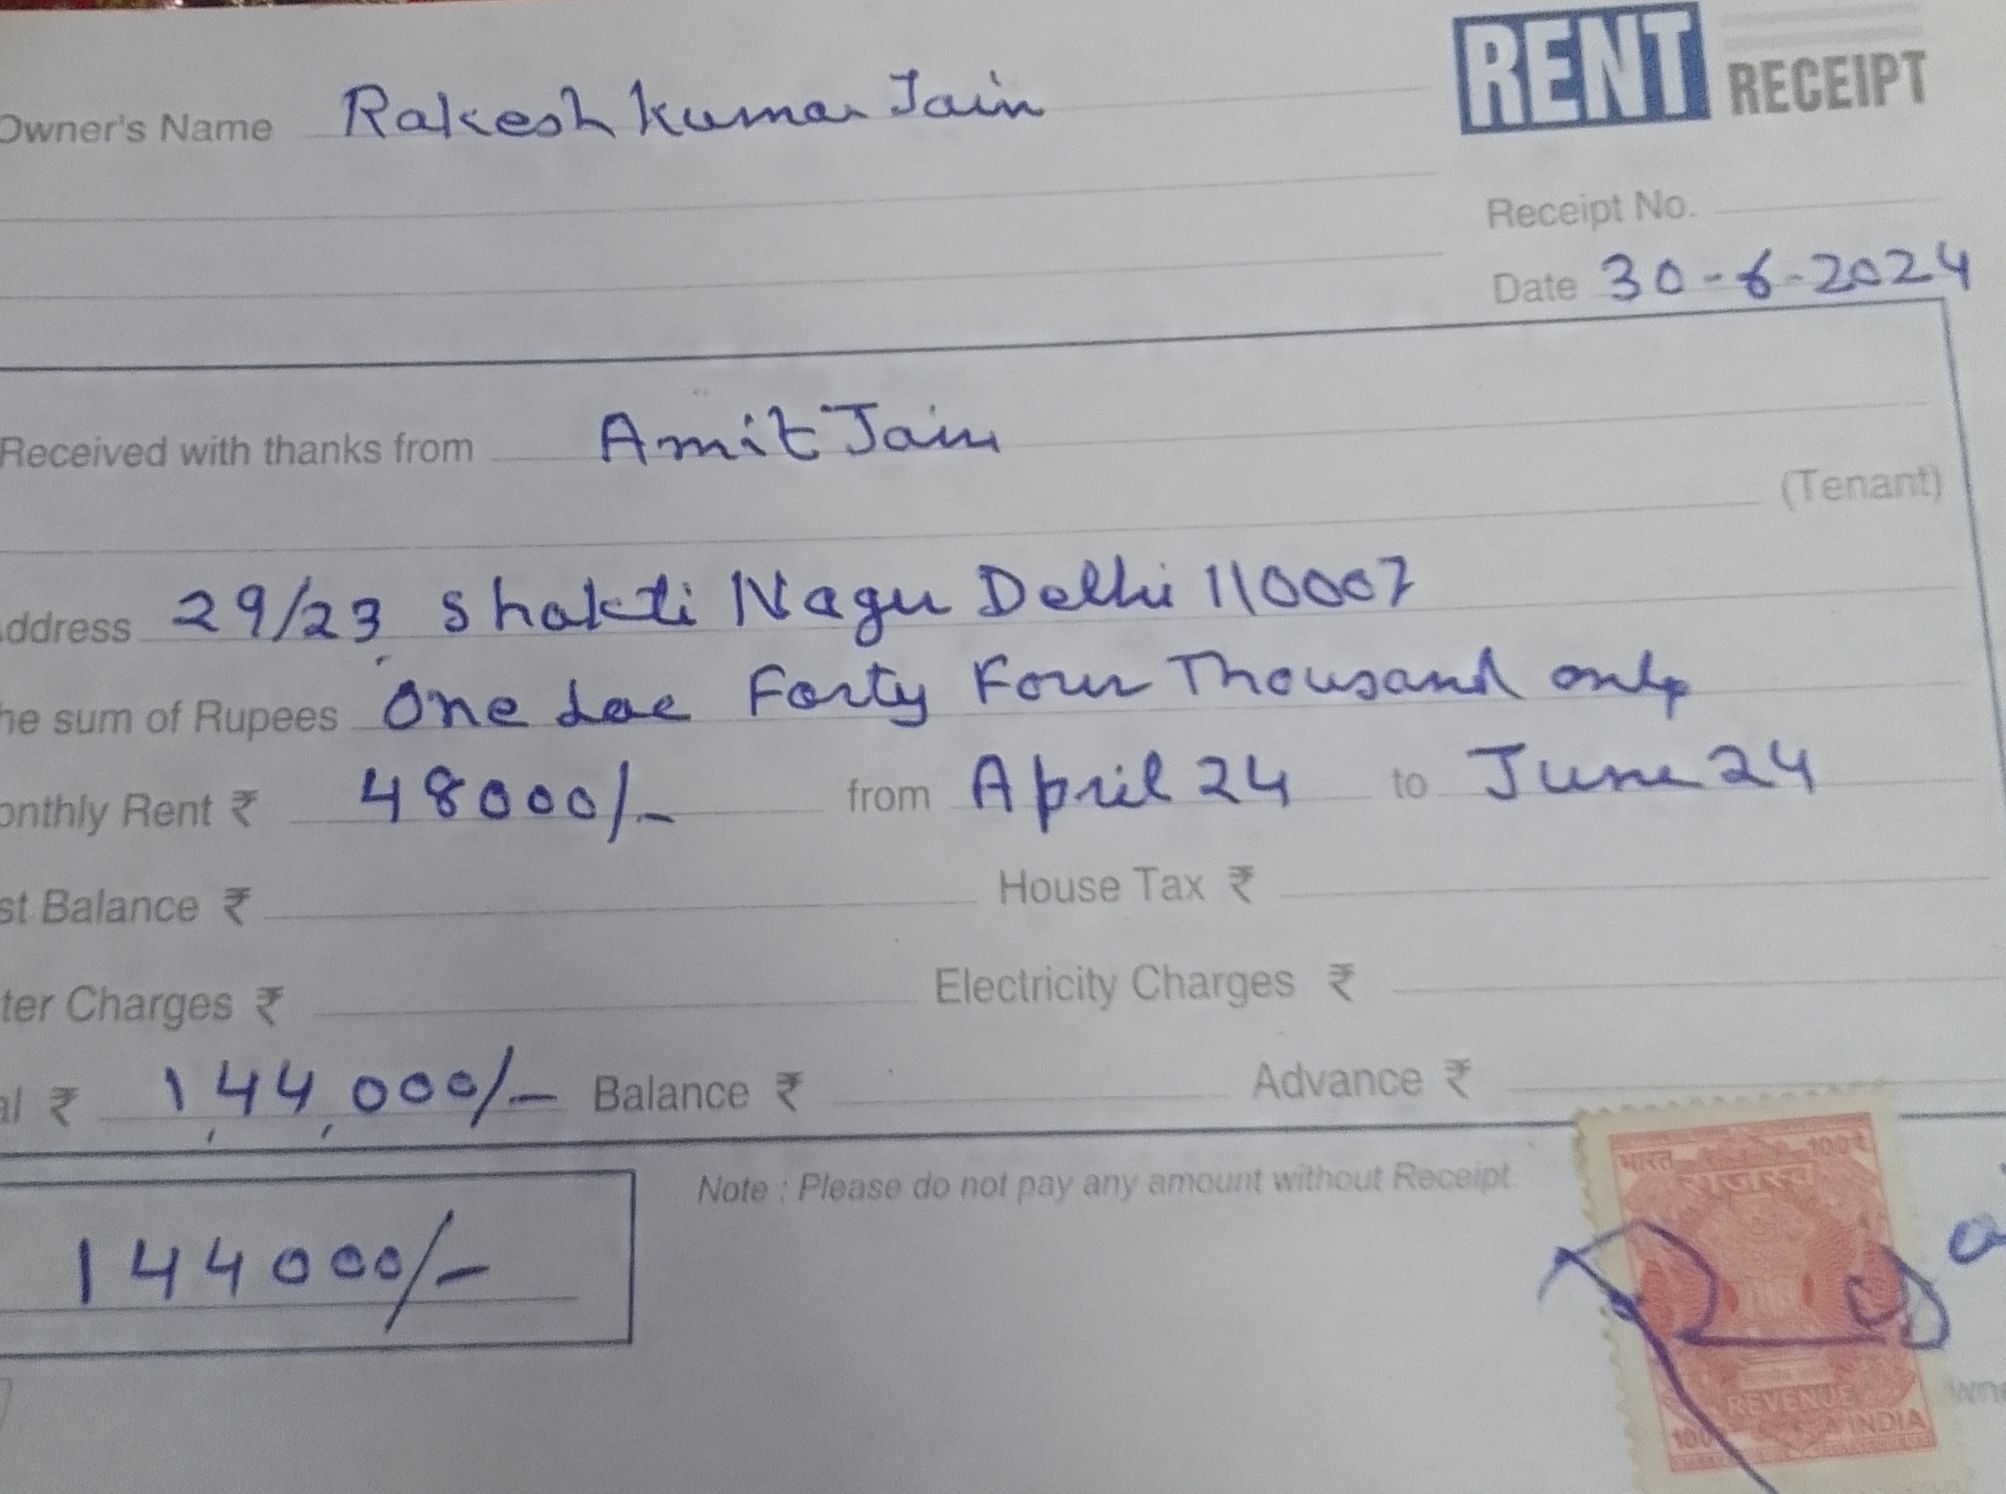 RENT RECEIPT
Owner's Name Rakesh Kumar Jain
Receipt No.
Date 30-6-2024
Received with thanks from Amit Jain
(Tenant)
ddress 29/23 Shakti Nagar Delhi 110007
he sum of Rupees One Lac Forty Four Thousand only
onthly Rent ₹ 48000/- from April 24 to June 24
st Balance ₹ House Tax ₹
ter Charges ₹ Electricity Charges ₹
al ₹ 1,44,000/- Balance ₹ Advance ₹
Note : Please do not pay any amount without Receipt
144000/-
भारत 100
राजस्व
REVENUE
100 INDIA